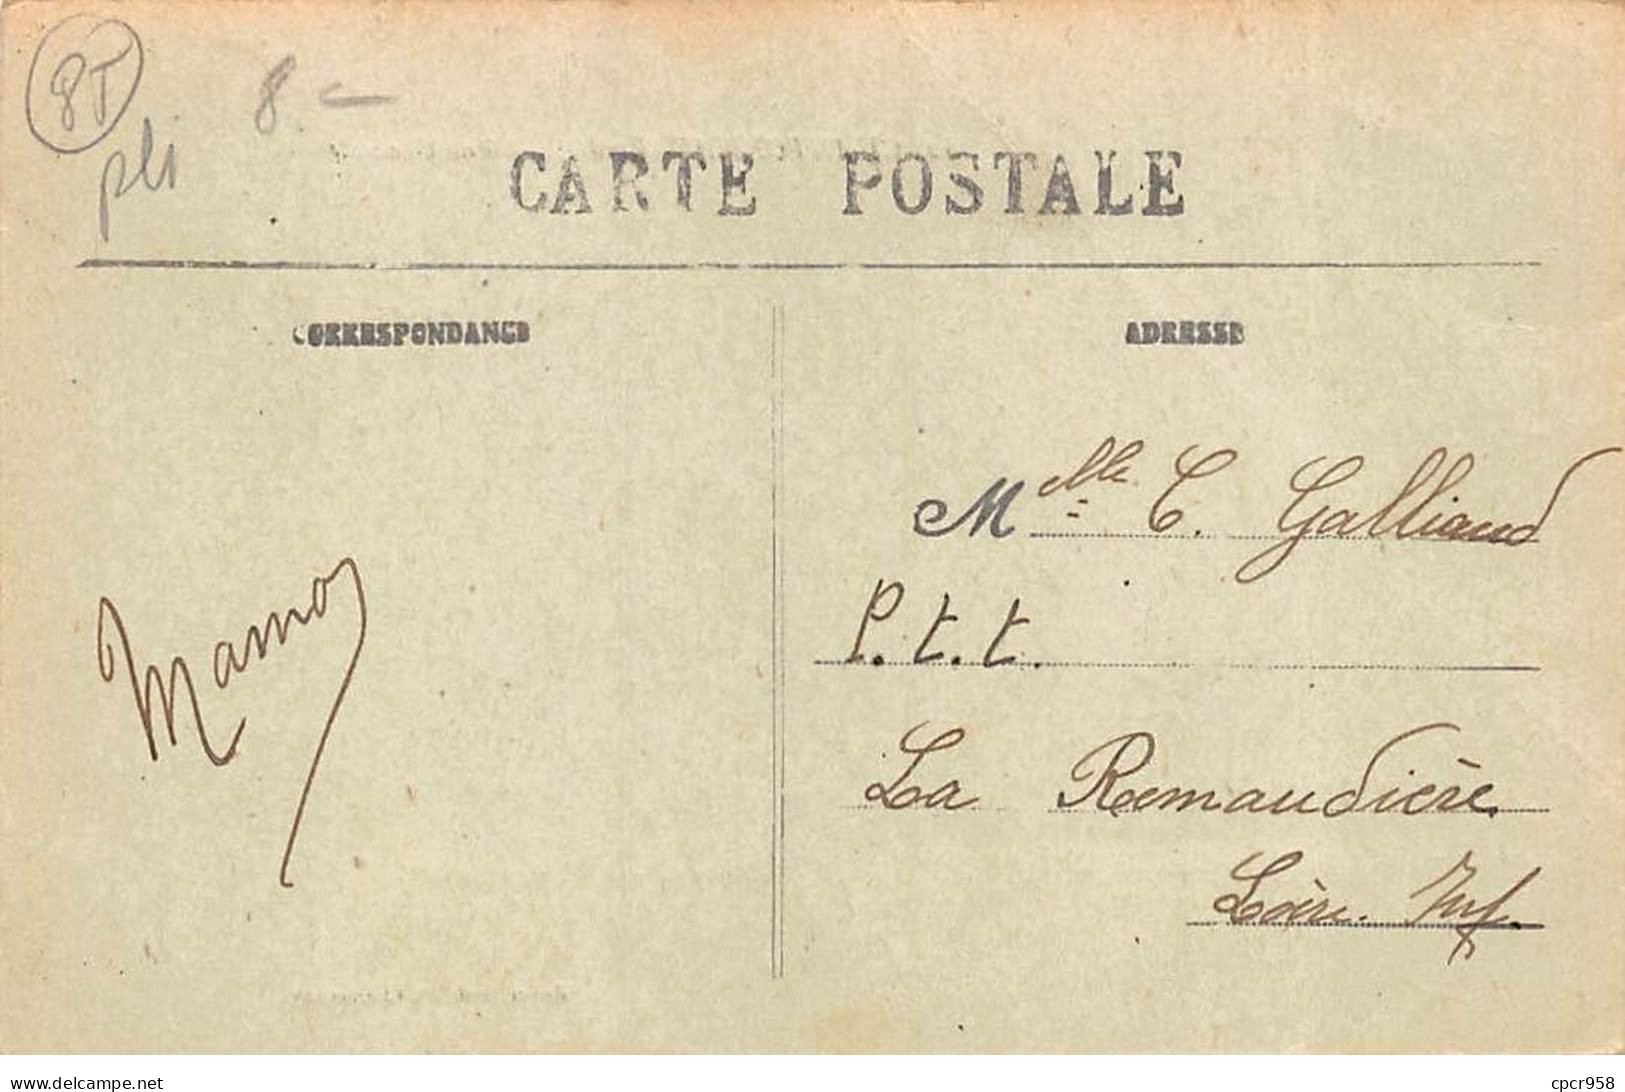 8T
pli
8.-
CARTE POSTALE
CORRESPONDANCE
ADRESSE
Mlle C. Galliaud
P.t.t.
La Remaudière
Loire. Inf.
Mamo
delcampe.net
cpcr958